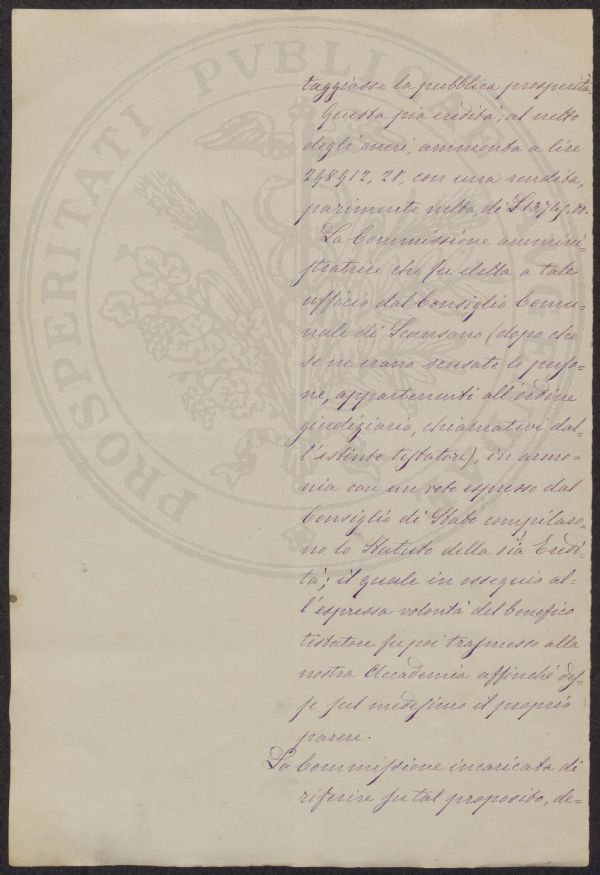 PROSPERITATI PVBLICAE
taggiasse la pubblica prosperità.
Questa pia eredità, al netto
degli oneri, ammonta a lire
298912,28, con una rendita,
parimenti netta, di £ 13,749.
La Commissione ammini=
stratrice che fu eletta a tale
ufficio dal Consiglio Comu=
nale di Scansano (dopo che
se ne erano scusate le perso=
ne, appartenenti all'ordine
giudiziario, chiamativi dal=
l'estinto testatore), in armo=
nia con un voto espresso dal
Consiglio di Stato compilaro=
no lo Statuto della Pia Eredi=
tà; il quale in ossequio al=
l'espressa volontà del benefico
testatore fu poi trasmesso alla
nostra Accademia affinchè des=
se sul medesimo il proprio
parere.
La Commissione incaricata di
riferire su tal proposito, de=